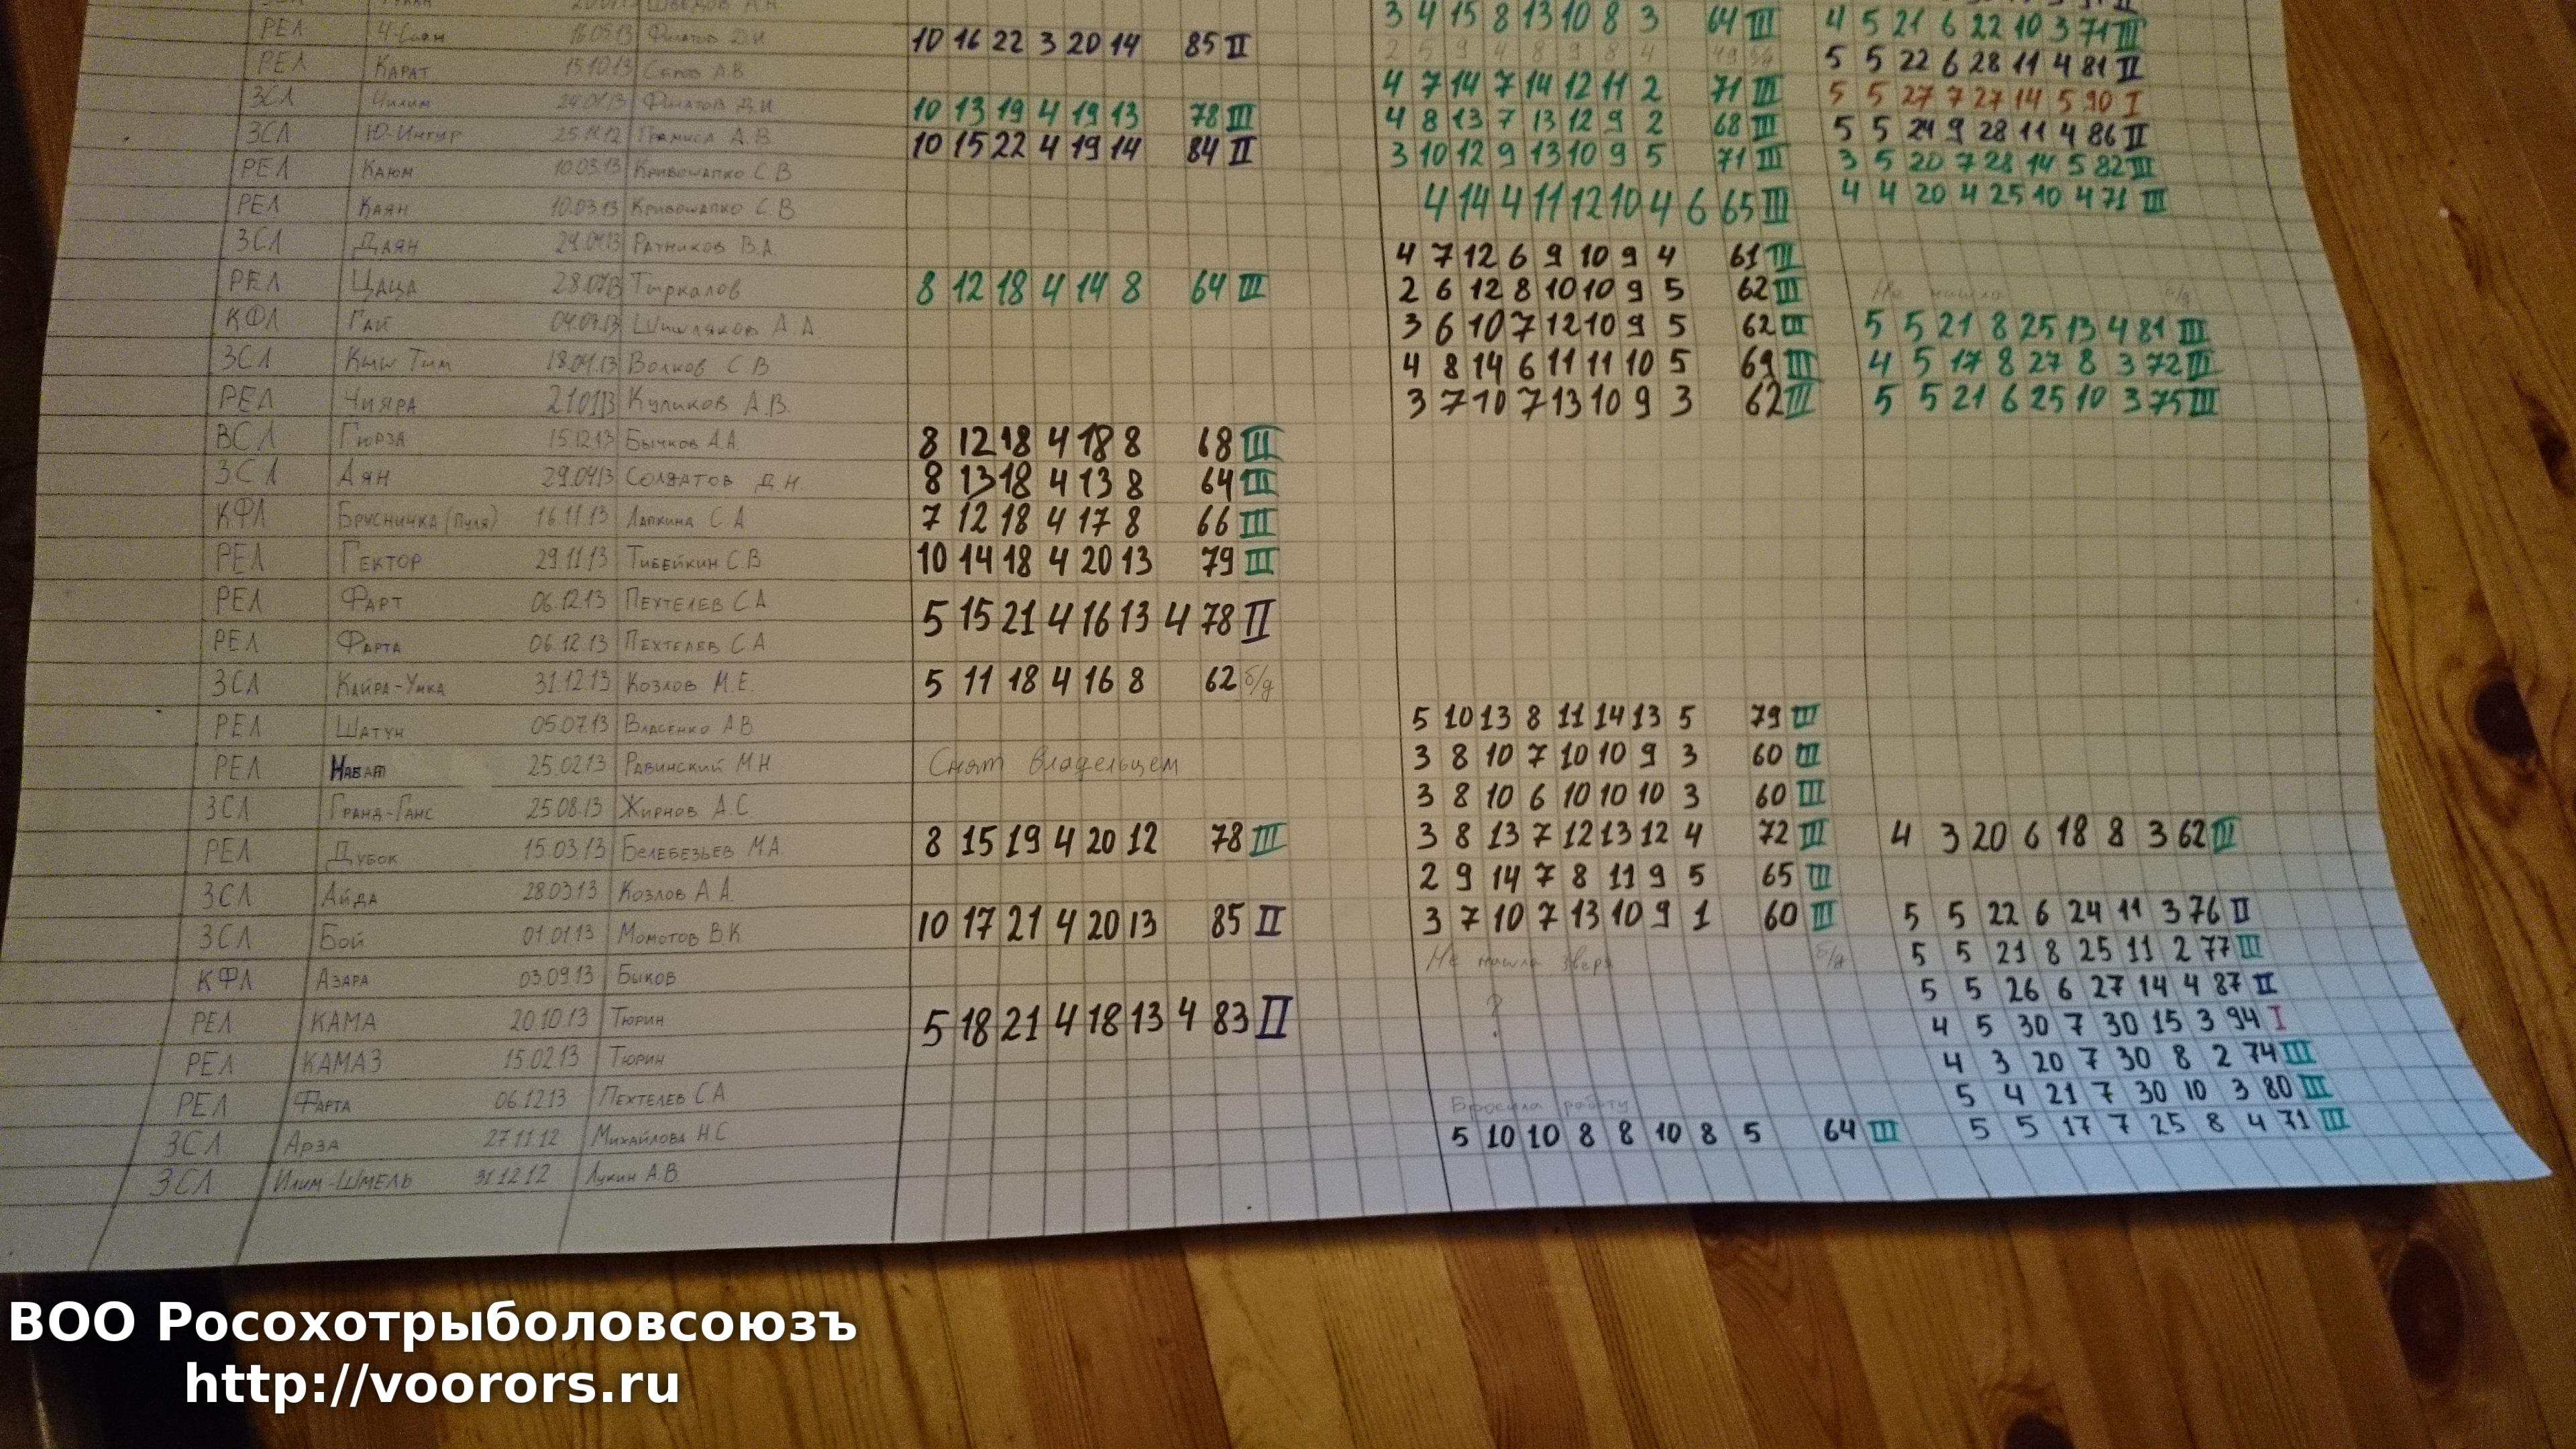 ШВЕДОВ А.Н.
РЕЛ Ч-Саян 16.09.13 Филатов Д.И 10 16 22 3 20 14 85 II 3 4 15 8 13 10 8 3 64 III 4 5 21 6 22 10 3 71 III
РЕЛ КАРАТ 15.10.13 А.В 2 5 9 4 8 9 8 4 49 б/д 5 5 22 6 28 11 4 81 II
ЗСЛ Чилим Филатов Д.И 10 13 19 4 19 13 78 III 4 7 14 7 14 12 11 2 71 III 5 5 27 7 27 14 5 90 I
ЗСЛ Ю-Ингур 25.11.12 А.В 10 15 22 4 19 14 84 II 4 8 13 7 13 12 9 2 68 III 5 5 24 9 28 11 4 86 II
РЕЛ КАЮМ 10.03.13 КРИВОШАПКО С В 3 10 12 9 13 10 9 5 71 III 3 5 20 7 28 14 5 82 III
РЕЛ КАЯН 10.03.13 КРИВОШАПКО С В 4 14 4 11 12 10 4 6 65 III 4 4 20 4 25 10 4 71 III
ЗСЛ ДАЯН 29.04.13 РАТНИКОВ В.А. 4 7 12 6 9 10 9 4 61 III
РЕЛ ЦАЦА 28.07.13 Тыркалов 8 12 18 4 14 8 64 III 2 6 12 8 10 10 9 5 62 III Не нашла б/д
КФЛ ГАЙ 04.07.13 Шишляков А.А 3 6 10 7 12 10 9 5 62 III 5 5 21 8 25 13 4 81 III
ЗСЛ Кыш Тим 18.04.13 Волков С В 4 8 14 6 11 11 10 5 69 III 4 5 17 8 27 8 3 72 III
РЕЛ ЧИЯРА 21.01.13 Куликов А.В. 3 7 10 7 13 10 9 3 62 III 5 5 21 6 25 10 3 75 III
ВСЛ ГЮРЗА 15.12.13 Бычков А.А. 8 12 18 4 18 8 68 III
ЗСЛ Аян 29.04.13 СОЛДАТОВ Д.Н. 8 13 18 4 13 8 64 III
КФЛ БРУСНИЧКА (Пуля) 16.11.13 Лапкина С А 7 12 18 4 17 8 66 III
РЕЛ ГЕКТОР 29.11.13 ТИБЕЙКИН С.В 10 14 18 4 20 13 79 III
РЕЛ ФАРТ 06.12.13 ПЕХТЕЛЕВ С А 5 15 21 4 16 13 4 78 II
РЕЛ ФАРТА 06.12.13 ПЕХТЕЛЕВ С А
ЗСЛ КАЙРА-УМКА 31.12.13 Козлов М.Е. 5 11 18 4 16 8 62 б/д
РЕЛ ШАТУН 05.07.13 Власенко А В 5 10 13 8 11 14 13 5 79 III
РЕЛ Набат 25.02.13 РАВИНСКИЙ М Н Снят владельцем 3 8 10 7 10 10 9 3 60 III
ЗСЛ ГРАНД-ГАНС 25.08.13 ЖИРНОВ А.С 3 8 10 6 10 10 10 3 60 III
РЕЛ ДУБОК 15.03.13 БЕЛЕБЕЗЬЕВ М.А 8 15 19 4 20 12 78 III 3 8 13 7 12 13 12 4 72 III 4 3 20 6 18 8 3 62 III
ЗСЛ АЙДА 28.03.13 Козлов А.А. 2 9 14 7 8 11 9 5 65 III
ЗСЛ Бой 01.01.13 Момотов В К 10 17 21 4 20 13 85 II 3 7 10 7 13 10 9 1 60 III 5 5 22 6 24 11 3 76 II
КФЛ АЗАРА 03.09.13 Быков Не нашла зверя б/д 5 5 21 8 25 11 2 77 III
РЕЛ КАМА 20.10.13 Тюрин 5 18 21 4 18 13 4 83 II ? 5 5 26 6 27 14 4 87 II
4 5 30 7 30 15 3 94 I
РЕЛ КАМАЗ 15.02.13 Тюрин 4 3 20 7 30 8 2 74 III
РЕЛ ФАРТА 06.12.13 ПЕХТЕЛЕВ С А Бросила работу 5 4 21 7 30 10 3 80 III
ЗСЛ АРЗА 27.11.12 Михайлова Н С 5 10 10 8 8 10 8 5 64 III 5 5 17 7 25 8 4 71 III
ЗСЛ Илим-ШМЕЛЬ 31.12.12 Лукин А.В
ВОО Росохотрыболовсоюзъ
http://voorors.ru